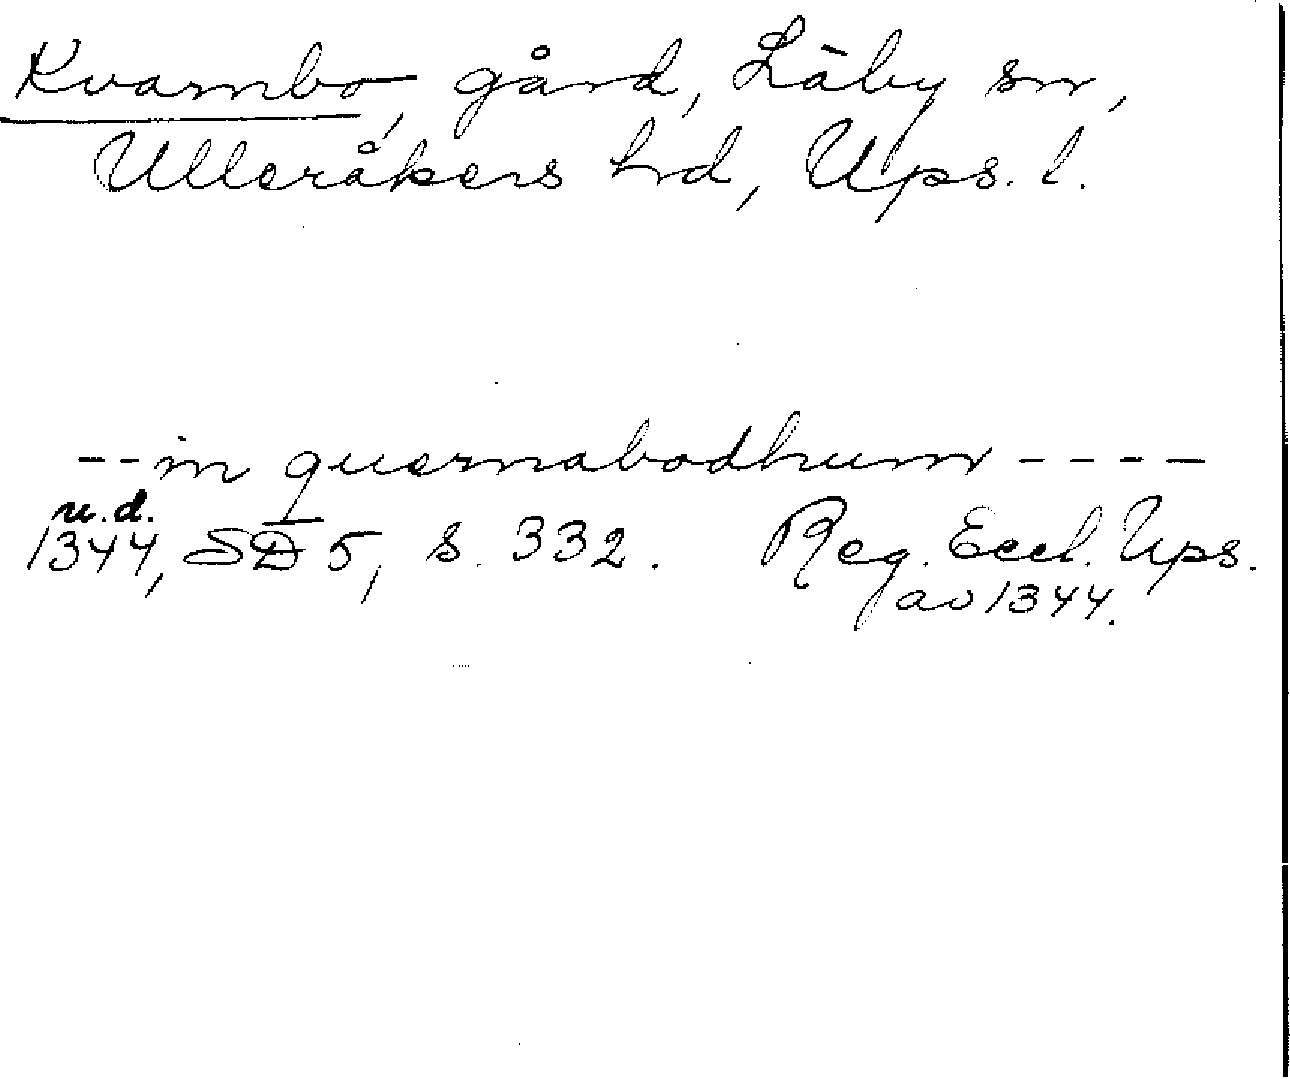 Kvarnbo, gård, Läby sn,
Ulleråkers hd, Ups. l.
--in quernabodhum----
u.d.
1344, SD 5, s. 332. Reg. Eccl. Ups.
av 1344.